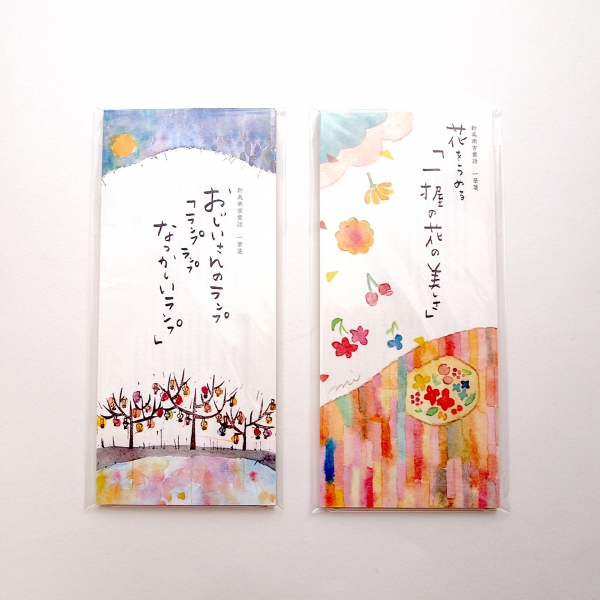 新美南吉童話 一筆箋
おじいさんのランプ
「ランプ ランプ
なつかしいランプ」
新美南吉童話 一筆箋
花をうめる
「一握の花の美しさ」